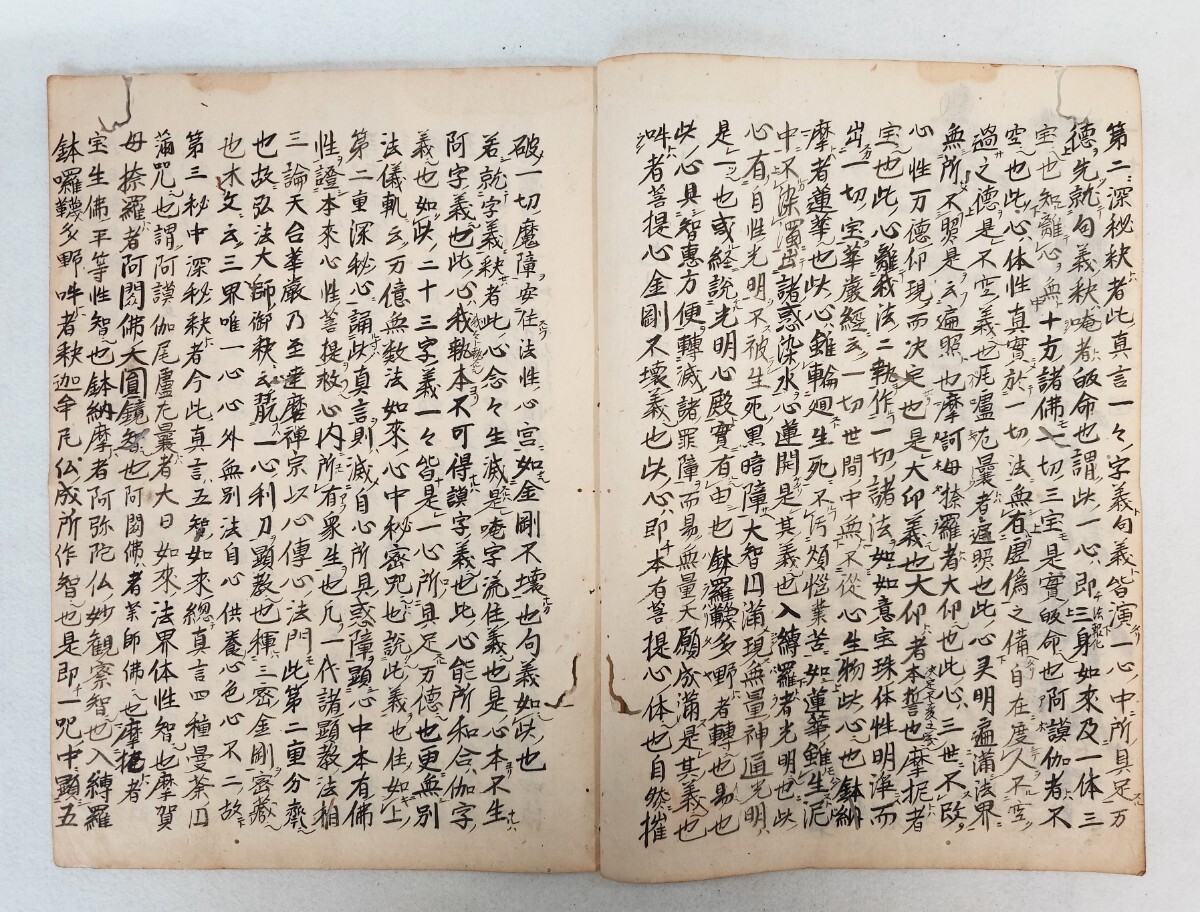 第二深秘釈者此真言一々字義句義皆演一心中所具足万
徳先就句義釈唵者皈命也謂此一心即三身如来及一体三
宝也知離心無十方諸佛一切三宝是實皈命也阿謨伽者不
空也此心体性真實於一切法無有虚偽之備自在度人不空
過之徳是不空義也尾盧左曩者遍照也此心灵明遍満法界
無所不照是云遍照也摩訶母捺羅者大印也此心三世不改
心性万徳印現而决定也是大印義也大印者本誓也摩抳者
宝也此心離我法二執作一切諸法如如意宝珠体性明浄而
出一切宝華嚴経云一切世間中無不從心生物此心也鉢納
摩者蓮華也此心雖輪廻生死不污煩惱業苦如蓮華雖生泥
中不染濁出諸惑染水心蓮開是其義也入縛羅者光明也此
心有自性光明不被生死黒暗障大智円満現無量神通光明
是一也或経説光明心殿實有由也鉢羅韈多野者轉也易也
此心具智惠方便轉滅諸罪障而易無量天願成満是其義也
吽者菩提心金剛不壊義也此心即本有菩提心体也自然摧
破一切魔障安住法性心宮如金剛不壊也句義如此也
若就字義釈者此心念々生滅是唵字流住義也是心本不生
阿字義也此心我執本不可得謨字義也此心能所和合伽字
義也如此二十三字義一々皆是一心所具足万徳也更無別
法儀軌云万億無数法如来心中秘密咒也説此義也住如上
第二重深秘心誦此真言則滅自心所具惑障顕心中本有佛
性證本来心性菩提救心内所有衆生也凡一代諸顕教法相
三論天台華嚴乃至達磨禅宗以心傳心法門此第二重分齊
也故弘法大師御釈云㲉一心利刀顕教也揮三密金剛密蔵
也木文云三界唯一心心外無別法自心供養心色心不二故
第三秘中深秘釈者今此真言五智如来総真言四種曼荼円
満咒也謂阿謨伽尾盧左曩者大日如来法界体性智也摩賀
母捺羅者阿閦佛大圓鏡智也阿閦佛者薬師佛也摩抳者
宝生佛平等性智也鉢納摩者阿弥陀仏妙観察智也入縛羅
鉢囉韈多野吽者釈迦牟尼仏成所作智也是即一咒中顕五